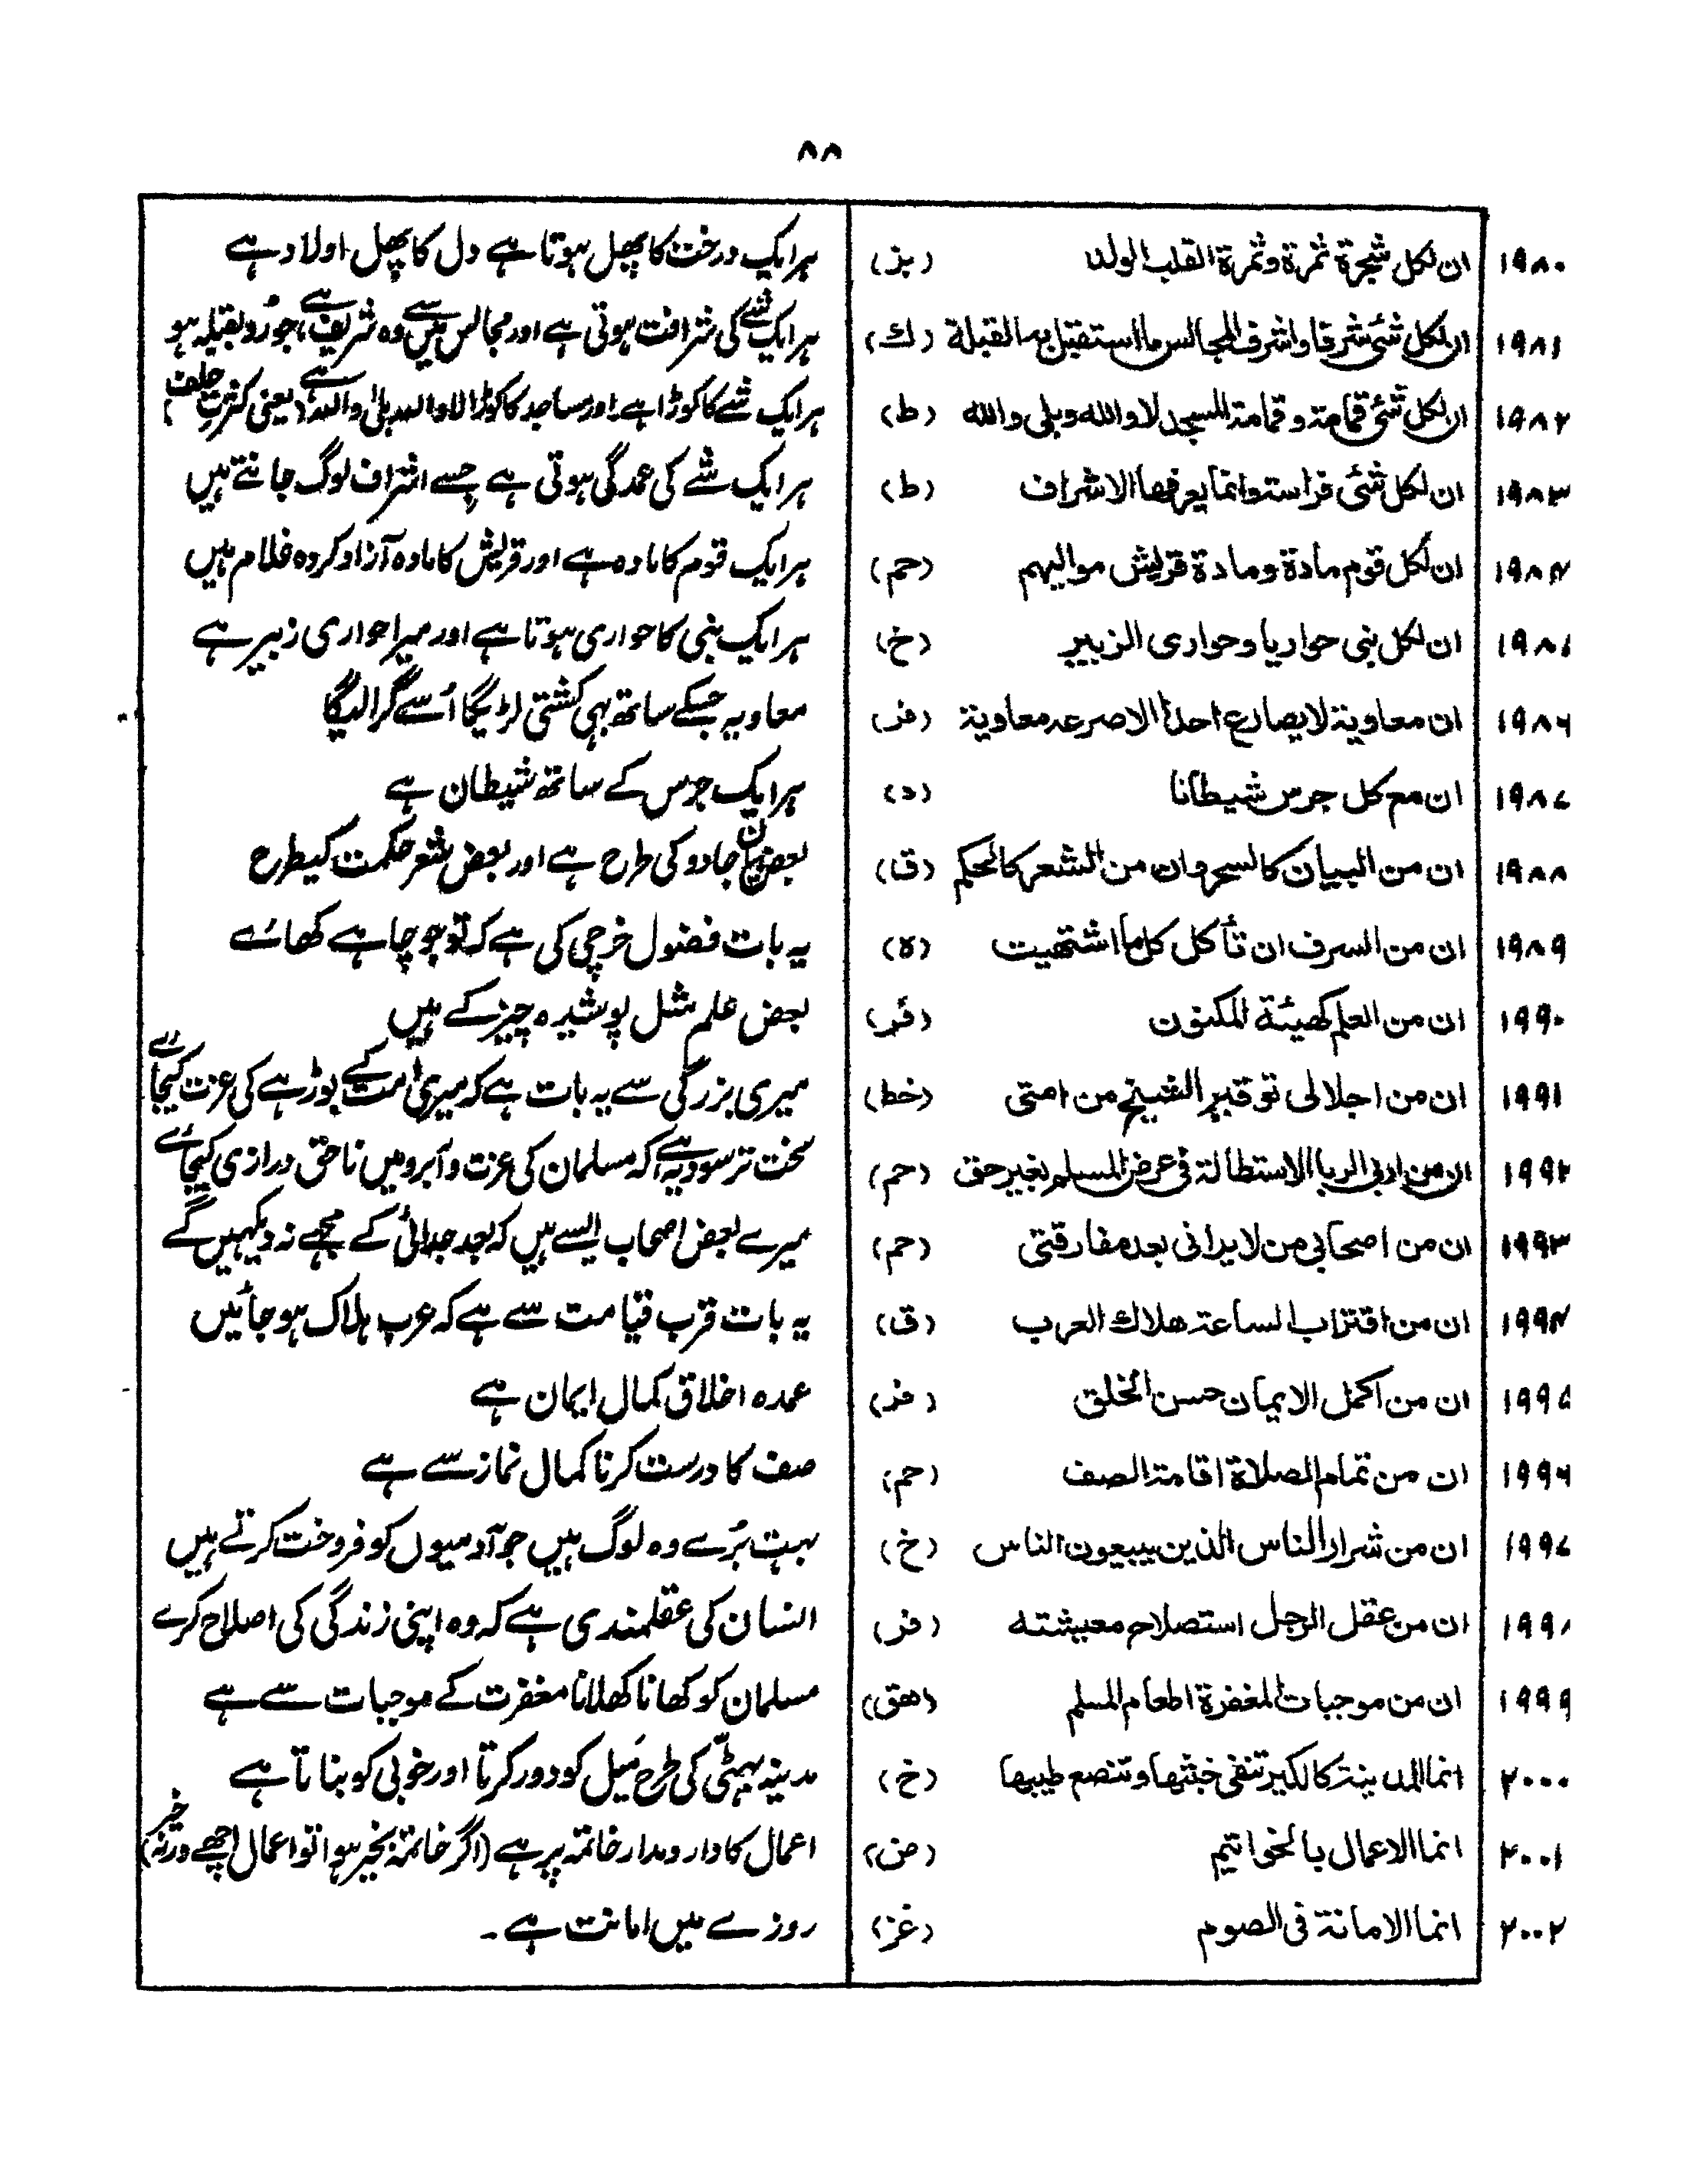 ۸۸
۱۹۸۰ ان لکل شجرة ثمرة وثمرة القلب الولد (بز) ہر ایک درخت کا پھل ہوتا ہے دل کا پھل اولاد ہے
۱۹۸۱ ان لکل شئ شرفا واشرف المجالس ما استقبل بہ القبلة (ك) ہر ایک شے کی شرافت ہوتی ہے اور مجالس میں سے وہ شریف ہے، جو رُو بقبلہ ہو
۱۹۸۲ ان لکل شئ قمامة و قمامة المسجد لا والله وبلی والله (ط) ہر ایک شے کا کوڑا ہے اور مساجد کا کوڑا لا واللہ بلیٰ واللہ ہے (یعنی کثرت حلف)
۱۹۸۳ ان لکل شئ فراسة وانما یعرفها الاشراف (ط) ہر ایک شے کی عمدگی ہوتی ہے جسے اشراف لوگ جانتے ہیں
۱۹۸۴ ان لکل قوم مادة ومادة قریش موالیهم (حم) ہر ایک قوم کا مادہ ہے اور قریش کا مادہ آزاد کردہ غلام ہیں
۱۹۸۵ ان لکل نبی حواریا وحواری الزبیر (خ) ہر ایک نبی کا حواری ہوتا ہے اور میرا حواری زبیر ہے
۱۹۸۶ ان معاویة لا یصارع احدا الا صرعہ معاویة (فر) معاویہ جسکے ساتھ بھی کشتی لڑیگا اُسے گرا لیگا
۱۹۸۷ ان مع کل جرس شیطانا (د) ہر ایک جرس کے ساتھ شیطان ہے
۱۹۸۸ ان من البیان کالسحر وان من الشعر کالحکم (ق) بعض بیان جادو کی طرح ہے اور بعض شعر حکمت کیطرح
۱۹۸۹ ان من السرف ان تأکل کلما اشتهیت (ہ) یہ بات فضول خرچی کی ہے کہ تو جو چاہے کھائے
۱۹۹۰ ان من العلم کهیئة المکنون (فر) بعض علم مثل پوشیدہ چیز کے ہیں
۱۹۹۱ ان من اجلالی توقیر الشیخ من امتی (خط) میری بزرگی سے یہ بات ہے کہ میری امت کے بوڑہے کی عزت کیجائے
۱۹۹۲ ان من اربی الربا الاستطالة فی عرض المسلم بغیر حق (حم) سخت تر سود یہ ہے کہ مسلمان کی عزت و آبرو میں ناحق درازی کیجائے
۱۹۹۳ ان من اصحابی من لا یرانی بعد مفارقتی (حم) میرے بعض اصحاب ایسے ہیں کہ بعد جدائی کے مجھے نہ دیکہیں گے
۱۹۹۴ ان من اقتراب الساعة هلاك العرب (ق) یہ بات قرب قیامت سے ہے کہ عرب ہلاک ہو جائیں
۱۹۹۵ ان من اکمل الایمان حسن الخلق (فر) عمدہ اخلاق کمال ایمان ہے
۱۹۹۶ ان من تمام الصلاة اقامة الصف (حم) صف کا درست کرنا کمال نماز سے ہے
۱۹۹۷ ان من شرار الناس الذین یبیعون الناس (خ) بہت بُرے وہ لوگ ہیں جو آدمیوں کو فروخت کرتے ہیں
۱۹۹۸ ان من عقل الرجل استصلاح معیشتہ (فر) انسان کی عقلمندی ہے کہ وہ اپنی زندگی کی اصلاح کرے
۱۹۹۹ ان من موجبات المغفرة اطعام المسلم (هق) مسلمان کو کھانا کھلانا مغفرت کے موجبات سے ہے
۲۰۰۰ انما المدینة کالکیر تنفی خبثها وتنصع طیبها (خ) مدینہ بھٹی کی طرح مَیل کو دور کرتا اور خوبی کو بناتا ہے
۲۰۰۱ انما الاعمال بالخواتیم (ض) اعمال کا دار و مدار خاتمہ پر ہے (اگر خاتمہ بخیر ہوا تو اعمال اچھے ورنہ خیر)
۲۰۰۲ انما الامانة فی الصوم (غز) روزے میں امانت ہے۔